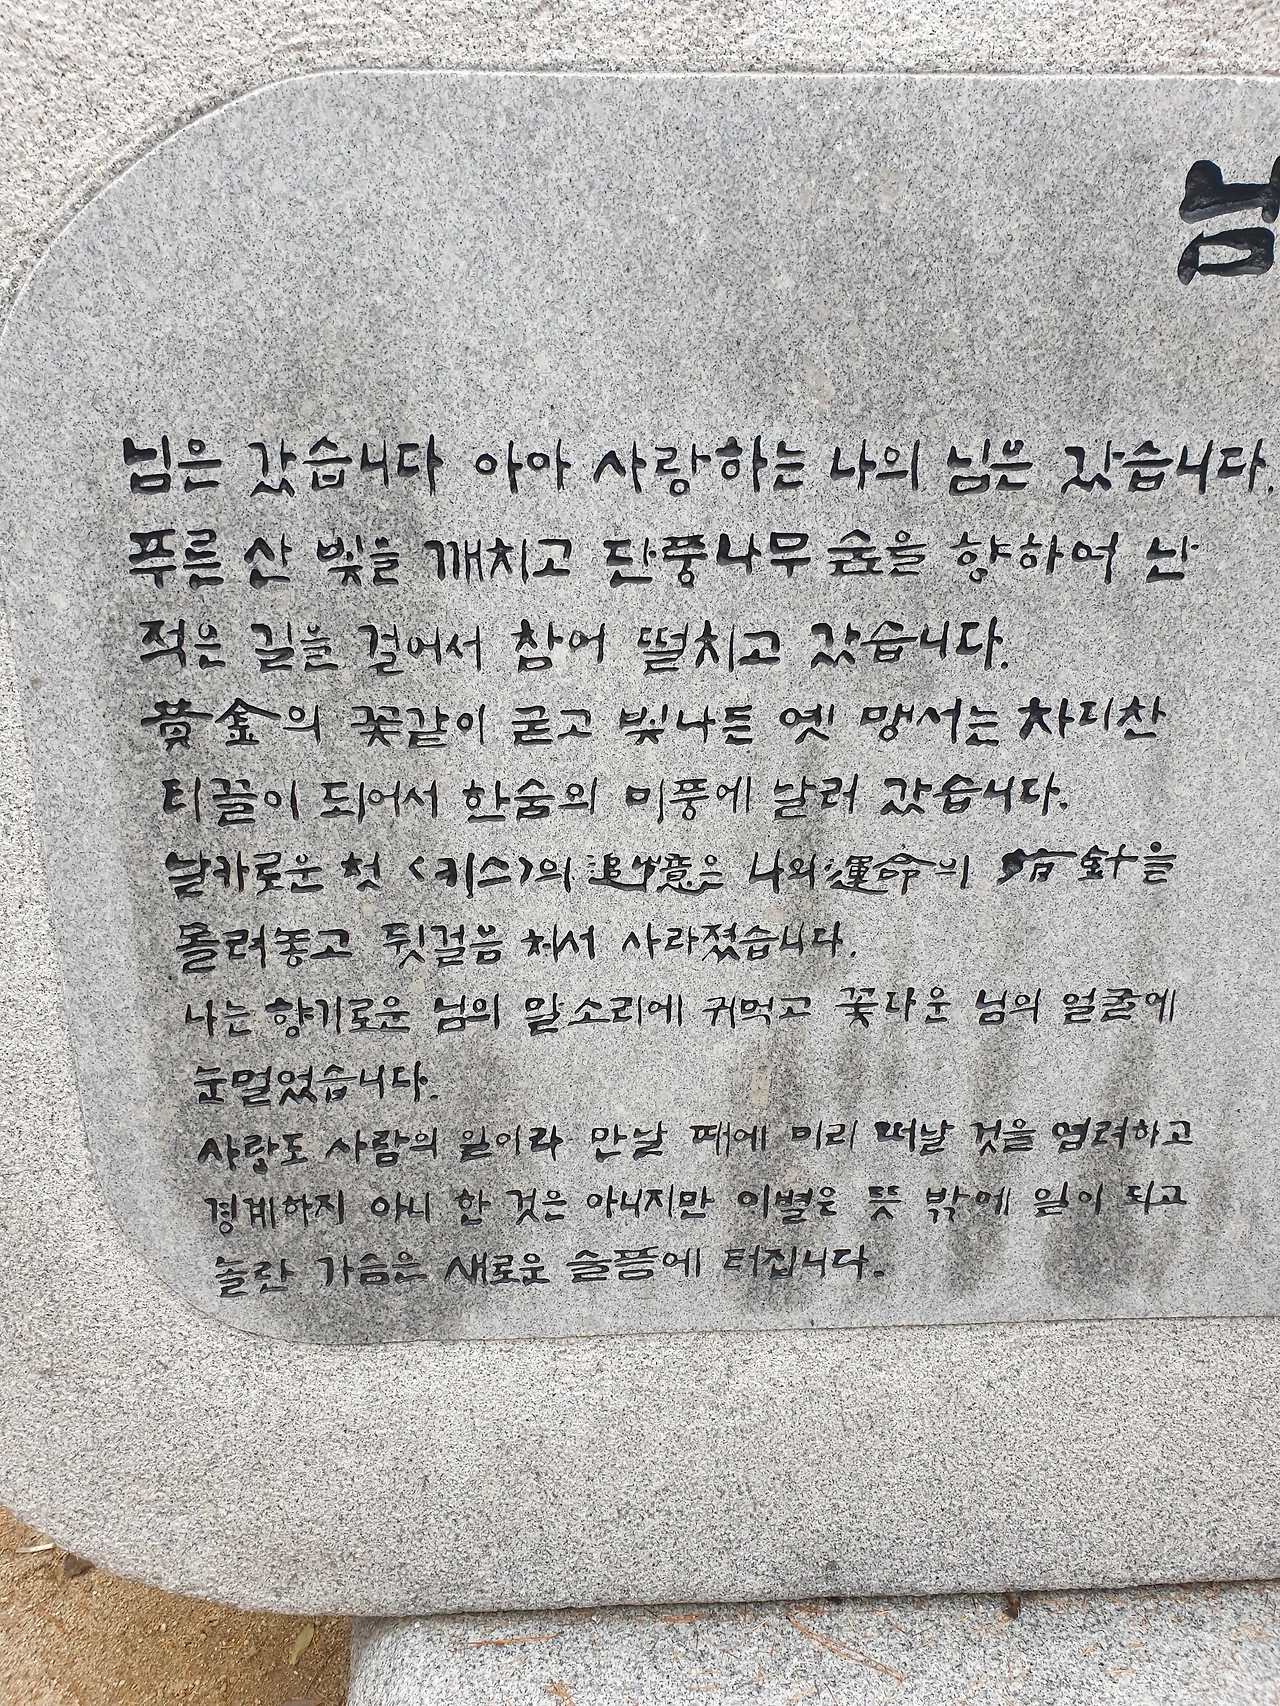 님
님은 갔습니다 아아 사랑하는 나의 님은 갔습니다.
푸른 산 빛을 깨치고 단풍나무 숲을 향하여 난
적은 길을 걸어서 참어 떨치고 갔습니다.
黃金의 꽃같이 굳고 빛나든 옛 맹서는 차디찬
티끌이 되어서 한숨의 미풍에 날러 갔습니다.
날카로운 첫 <키스>의 追憶은 나의 運命의 指針을
돌려놓고 뒷걸음 쳐서 사라졌습니다.
나는 향기로운 님의 말소리에 귀먹고 꽃다운 님의 얼굴에
눈멀었습니다.
사랑도 사람의 일이라 만날 때에 미리 떠날 것을 염려하고
경계하지 아니 한 것은 아니지만 이별은 뜻 밖에 일이 되고
놀란 가슴은 새로운 슬픔에 터집니다.